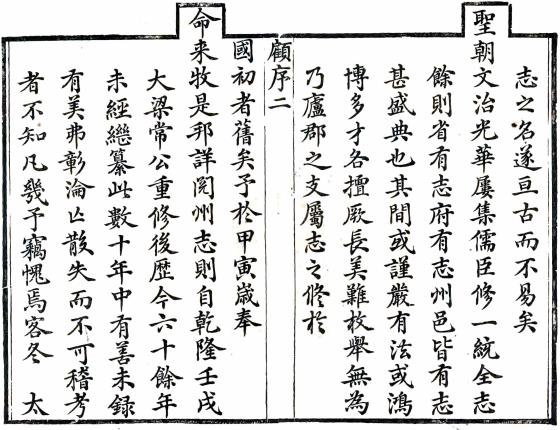 志之名遂亘古而不易矣
聖朝文治光華屢集儒臣修一統全志
餘則省有志府有志州邑皆有志
甚盛典也其間或謹嚴有法或鴻
博多才各擅厥長美難枚舉無為
乃廬郡之支屬志之修於
顧序二
國初者舊矣予於甲寅歲奉
命来牧是邦詳閱州志則自乾隆壬戌
大梁常公重修後歷今六十餘年
未經繼纂此數十年中有善未録
有美弗彰淪亡散失而不可稽考
者不知凡幾予竊愧焉客冬 太